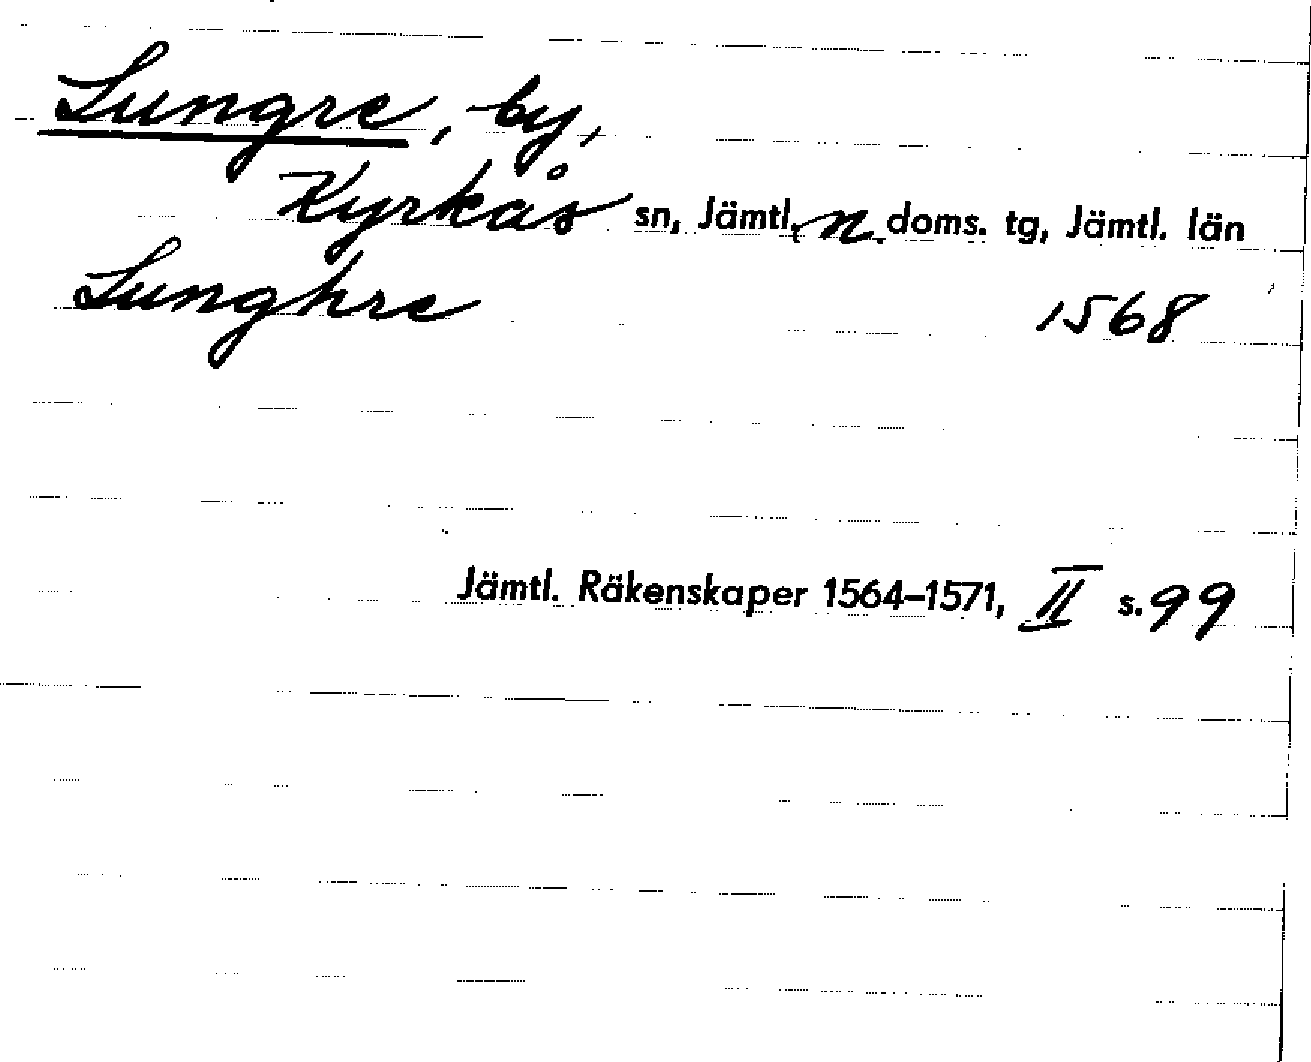 Lungre, by,
Kyrkås sn, Jämtl. n. doms. tg, Jämtl. län
Lunghre 1568
Jämtl. Räkenskaper 1564–1571, II s. 99